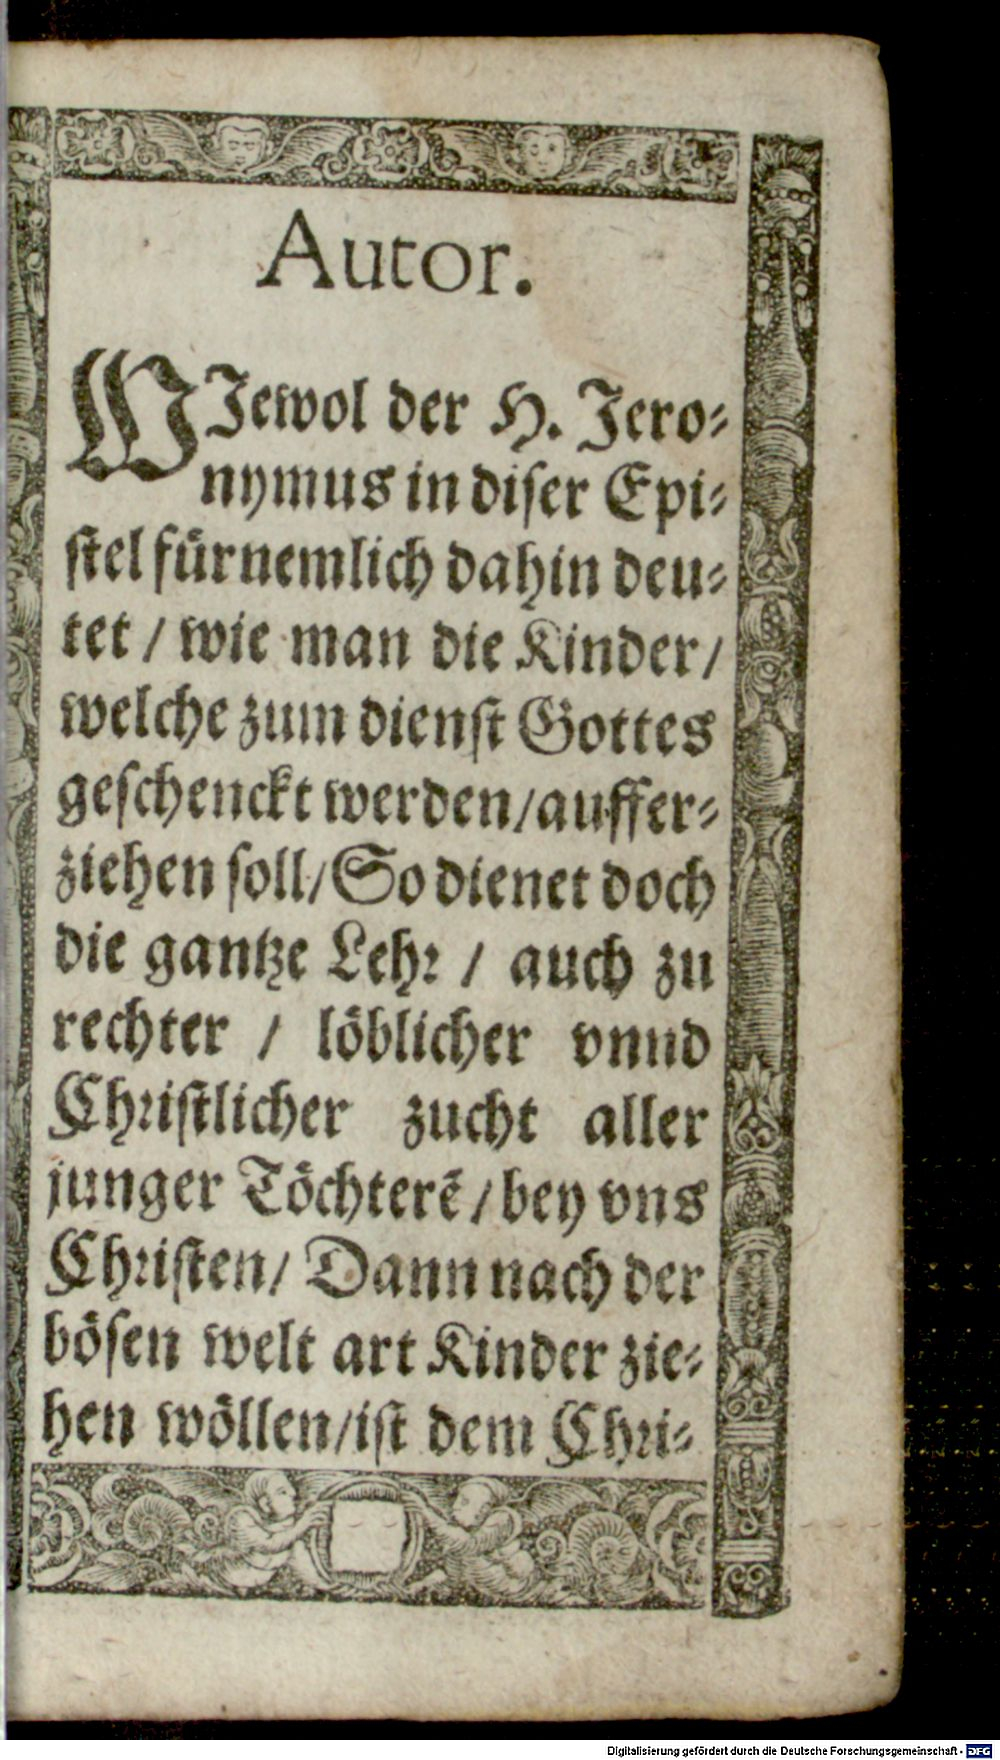 Autor.
WJewol der H. Jero⸗
nymus in diser Epi⸗
stel fürnemlich dahin deu⸗
tet / wie man die Kinder /
welche zum dienst Gottes
geschenckt werden / auffer⸗
ziehen soll / So dienet doch
die gantze Lehr / auch zu
rechter / löblicher vnnd
Christlicher zucht aller
junger Töchterē / bey vns
Christen / Dann nach der
bösen welt art Kinder zie⸗
hen wöllen / ist dem Chri⸗
Digitalisierung gefördert durch die Deutsche Forschungsgemeinschaft - DFG